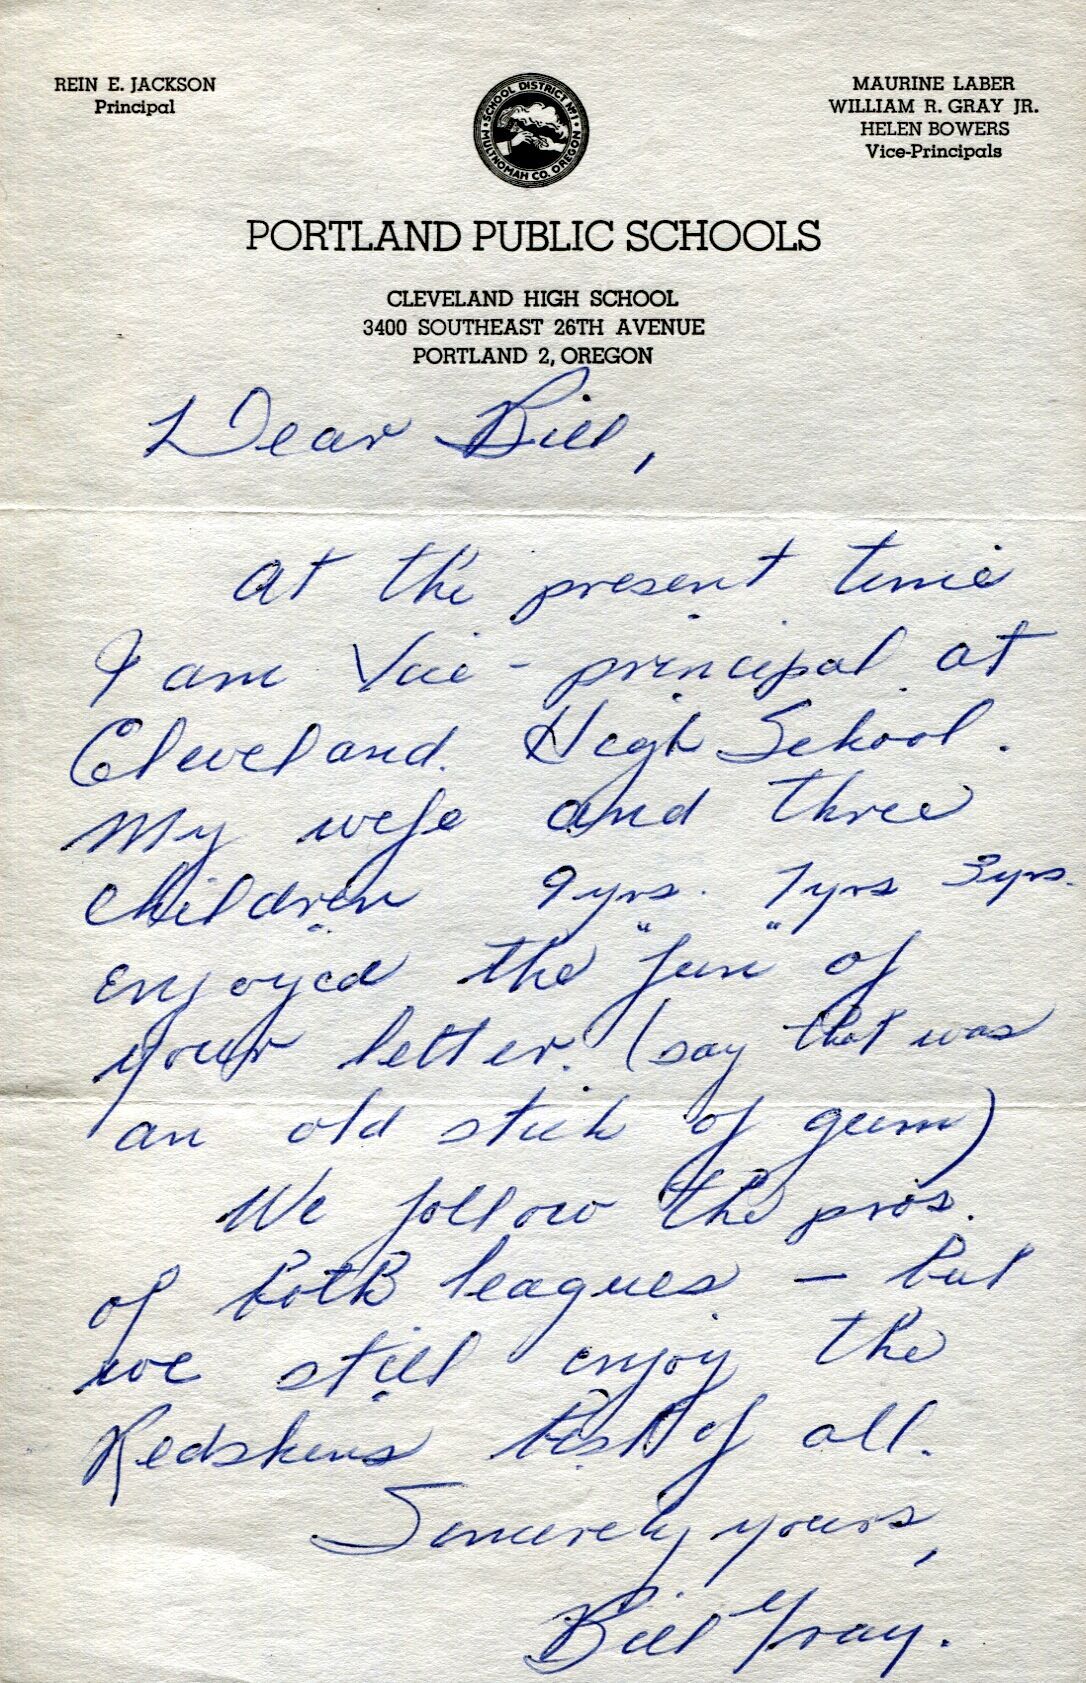 REIN E. JACKSON
Principal
SCHOOL DISTRICT No 1
MULTNOMAH CO. OREGON
MAURINE LABER
WILLIAM R. GRAY JR.
HELEN BOWERS
Vice-Principals
PORTLAND PUBLIC SCHOOLS
CLEVELAND HIGH SCHOOL
3400 SOUTHEAST 26TH AVENUE
PORTLAND 2, OREGON
Dear Bill,
At the present time
I am Vice-principal at
Cleveland High School.
My wife and three
children 9yrs. 7yrs 3yrs.
enjoyed the "fun" of
your letter. (say that was
an old stick of gum)
We follow the pros.
of both leagues — but
we still enjoy the
Redskins best of all.
Sincerely yours,
Bill Gray.